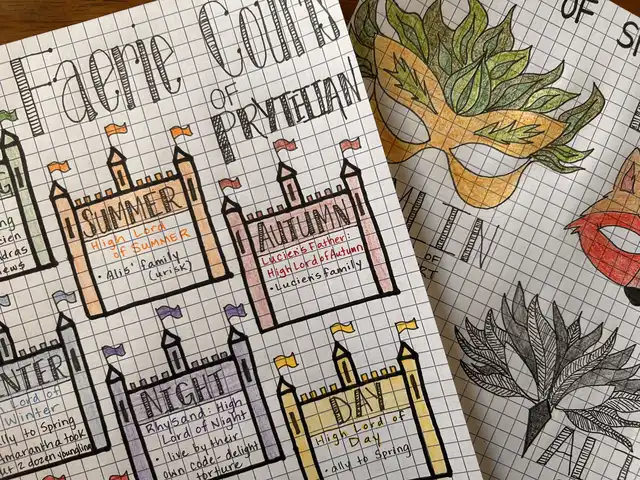 Faerie Courts
OF
PRYTHIAN
SUMMER
High Lord
of SUMMER
• Alis' family
(urisk)
AUTUMN
Lucien's Father:
High Lord of Autumn
• Lucien's family
NIGHT
Rhysand: High
Lord of Night
• live by their
own code - delight
torture
DAY
High Lord of
Day
• ally to Spring
Lord of
Winter
ally to Spring
Amarantha took
2 dozen younglings
OF